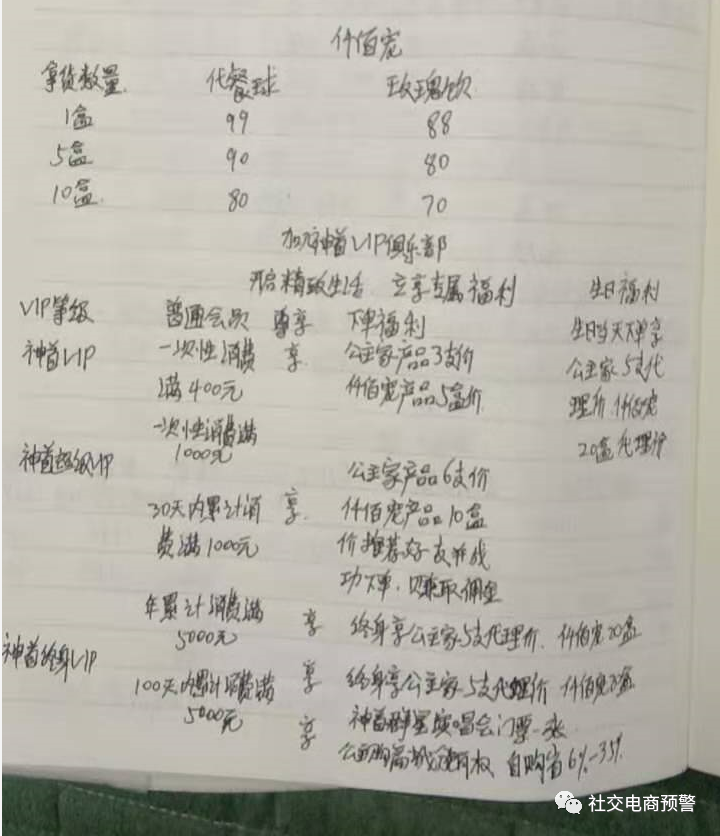 仟佰宠
拿货数量 代餐球 玫瑰饮
1盒 99 88
5盒 90 80
10盒 80 70
加入神首VIP俱乐部
开启精致生活 立享专属福利 生日福利
VIP等级 普通会员 尊享 下单福利 生日当天下单享
神首VIP 一次性消费 享 公主家产品3支价 公主家5支代
满400元 仟佰宠产品5盒价 理价 仟佰宠
一次性消费满 20盒代理价
神首超级VIP 1000元 公主家产品6支价
30天内累计消 享 仟佰宠产品10盒
费满1000元 价 推荐好友并成
功下单,赚取佣金
年累计消费满 享 终身享公主家5支代理价、仟佰宠20盒
神首终身VIP 5000元
100天内累计消费满 享 终身享公主家5支代理价 仟佰宠 盒
5000元 享 神首群星演唱会门票一张
权 自购省6%-35%
社交电商预警